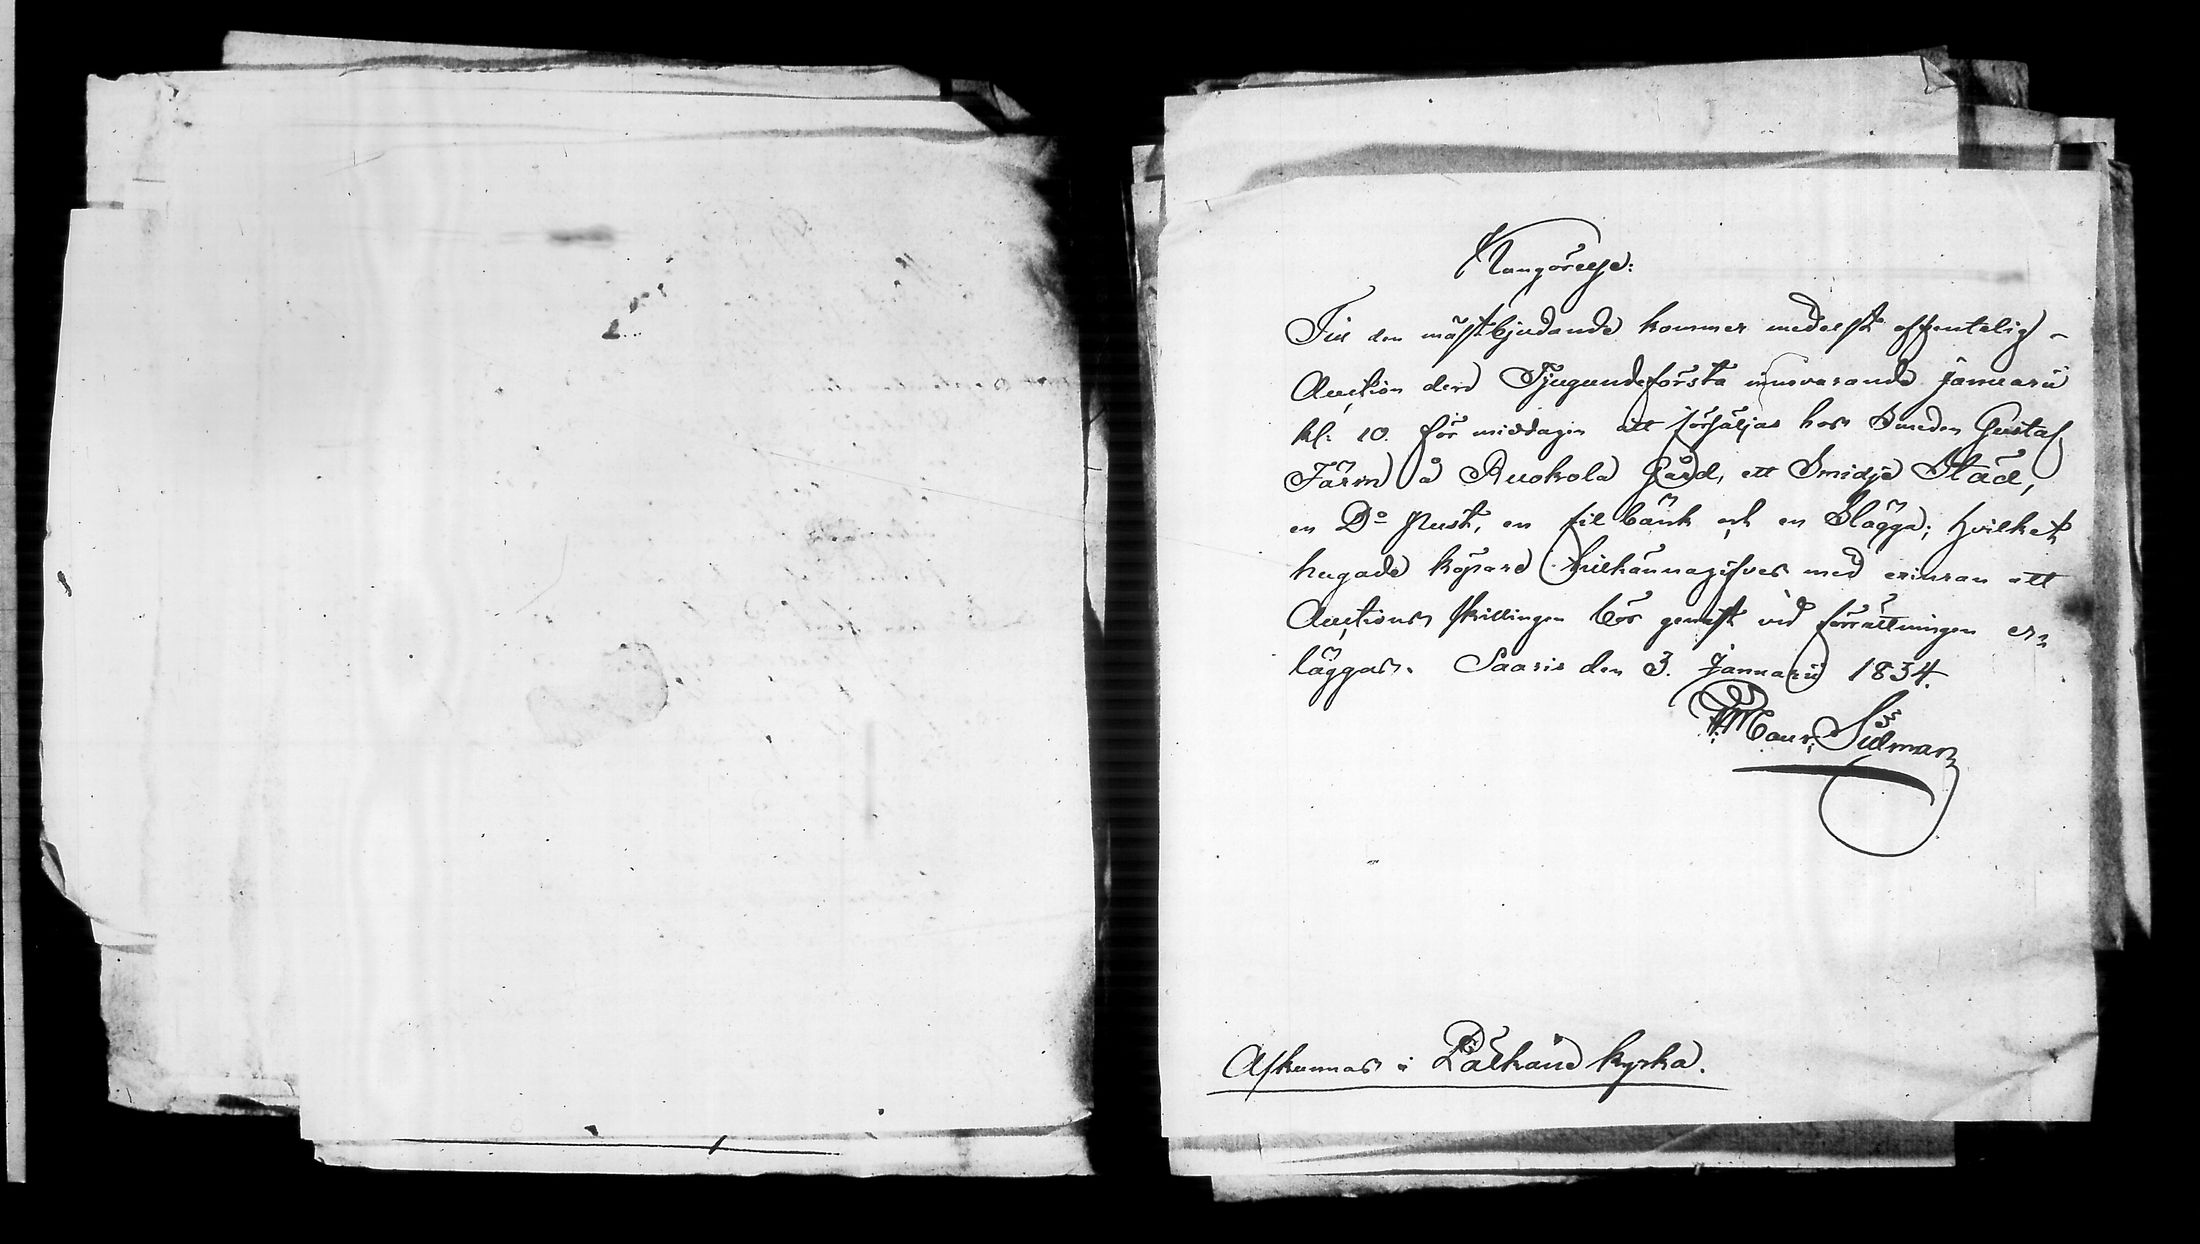 Kungörelse:
Till den mästbjudande kommer medelst offentelig
Auction den Tjugundeförsta innevarande Januarii
kl: 10. för middagen att försäljas hos Smeden Gustaf
Färm å Ruokola Gård, ett Smidje Städ,
en Do Pust, en fil bänk och en Slägga; hvilket
hugade köpare tillkännagifves med erinran att
Auctions skillingen bör genast vid förrättningen er-
läggas. Saaris den 3. Januarii 1834.
Maur: Sulman
Afkunnas i Pälkäne kyrka.